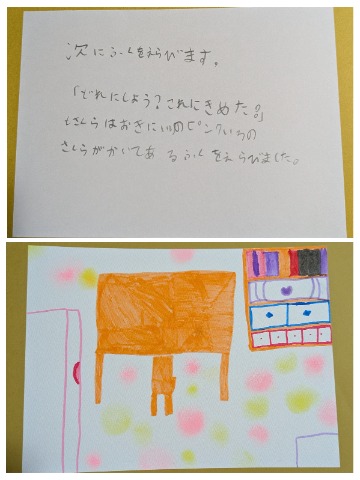 次にふくをえらびます。
「どれにしよう?これにきめた。」
さくらはおきにいりのピンクいろの
さくらがかいてあるふくをえらびました。